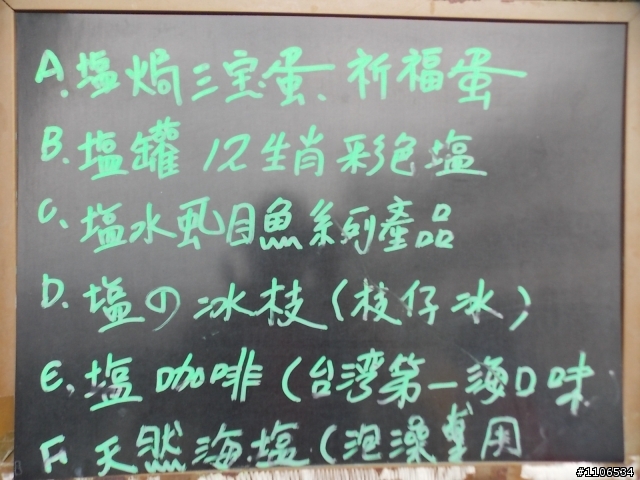 A. 塩焗三宝蛋、祈福蛋
B. 塩罐 12生肖彩色塩
C. 塩水虱目魚系列產品
D. 塩の冰枝(枝仔冰)
E. 塩咖啡(台湾第一海口味
F. 天然海塩(泡澡專用
#1106534